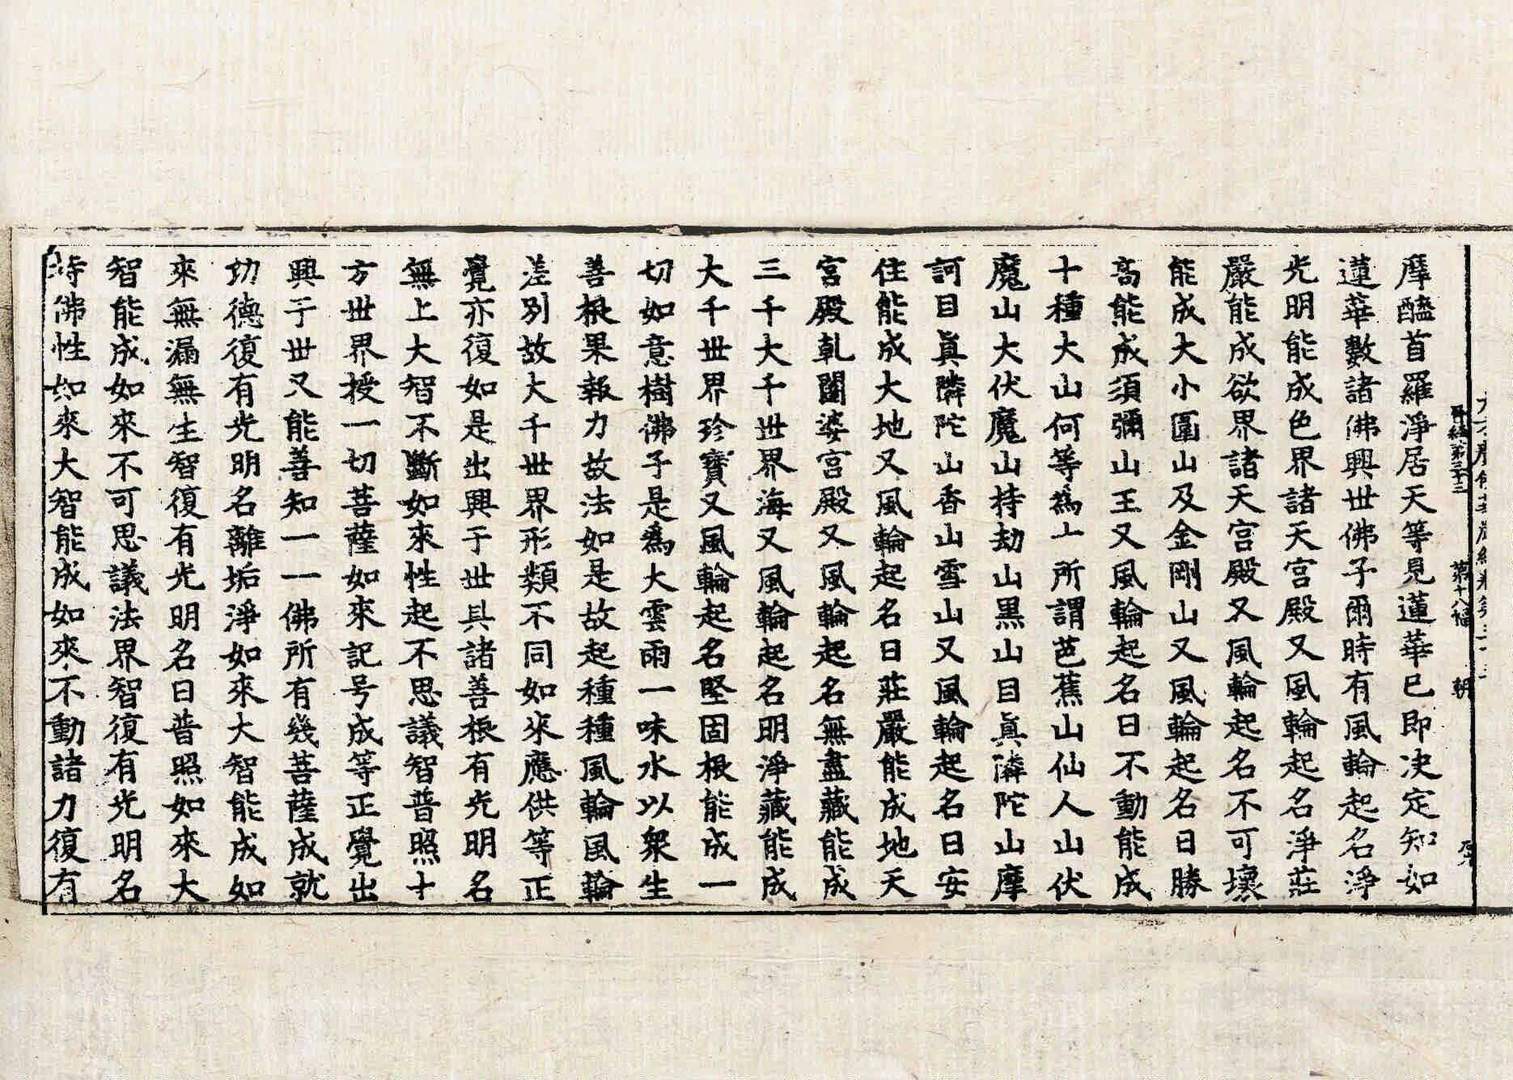 摩醯首羅淨居天等見蓮華已即决定知如
蓮華數諸佛興世佛子爾時有風輪起名淨
光明能成色界諸天宮殿又風輪起名淨莊
嚴能成欲界諸天宮殿又風輪起名不可壞
能成大小圍山及金剛山又風輪起名曰勝
高能成須彌山王又風輪起名曰不動能成
十種大山何等爲十所謂芭蕉山仙人山伏
魔山大伏魔山持劫山黒山目眞隣陀山摩
訶目眞隣陀山香山雪山又風輪起名曰安
住能成大地又風輪起名曰莊嚴能成地天
宮殿乹闥婆宮殿又風輪起名無盡藏能成
三千大千世界海又風輪起名明淨藏能成
大千世界珍寳又風輪起名堅固根能成一
切如意樹佛子是爲大雲雨一味水以衆生
善根果報力故法如是故起種種風輪風輪
差别故大千世界形類不同如來應供等正
覺亦復如是出興于世具諸善根有光明名
無上大智不斷如來性起不思議智普照十
方世界授一切菩薩如來記号成等正覺出
興于世又能善知一一佛所有幾菩薩成就
功德復有光明名離垢淨如來大智能成如
來無漏無生智復有光明名曰普照如來大
智能成如來不可思議法界智復有光明名
持佛性如來大智能成如來不動諸力復有
第十八幅
朝